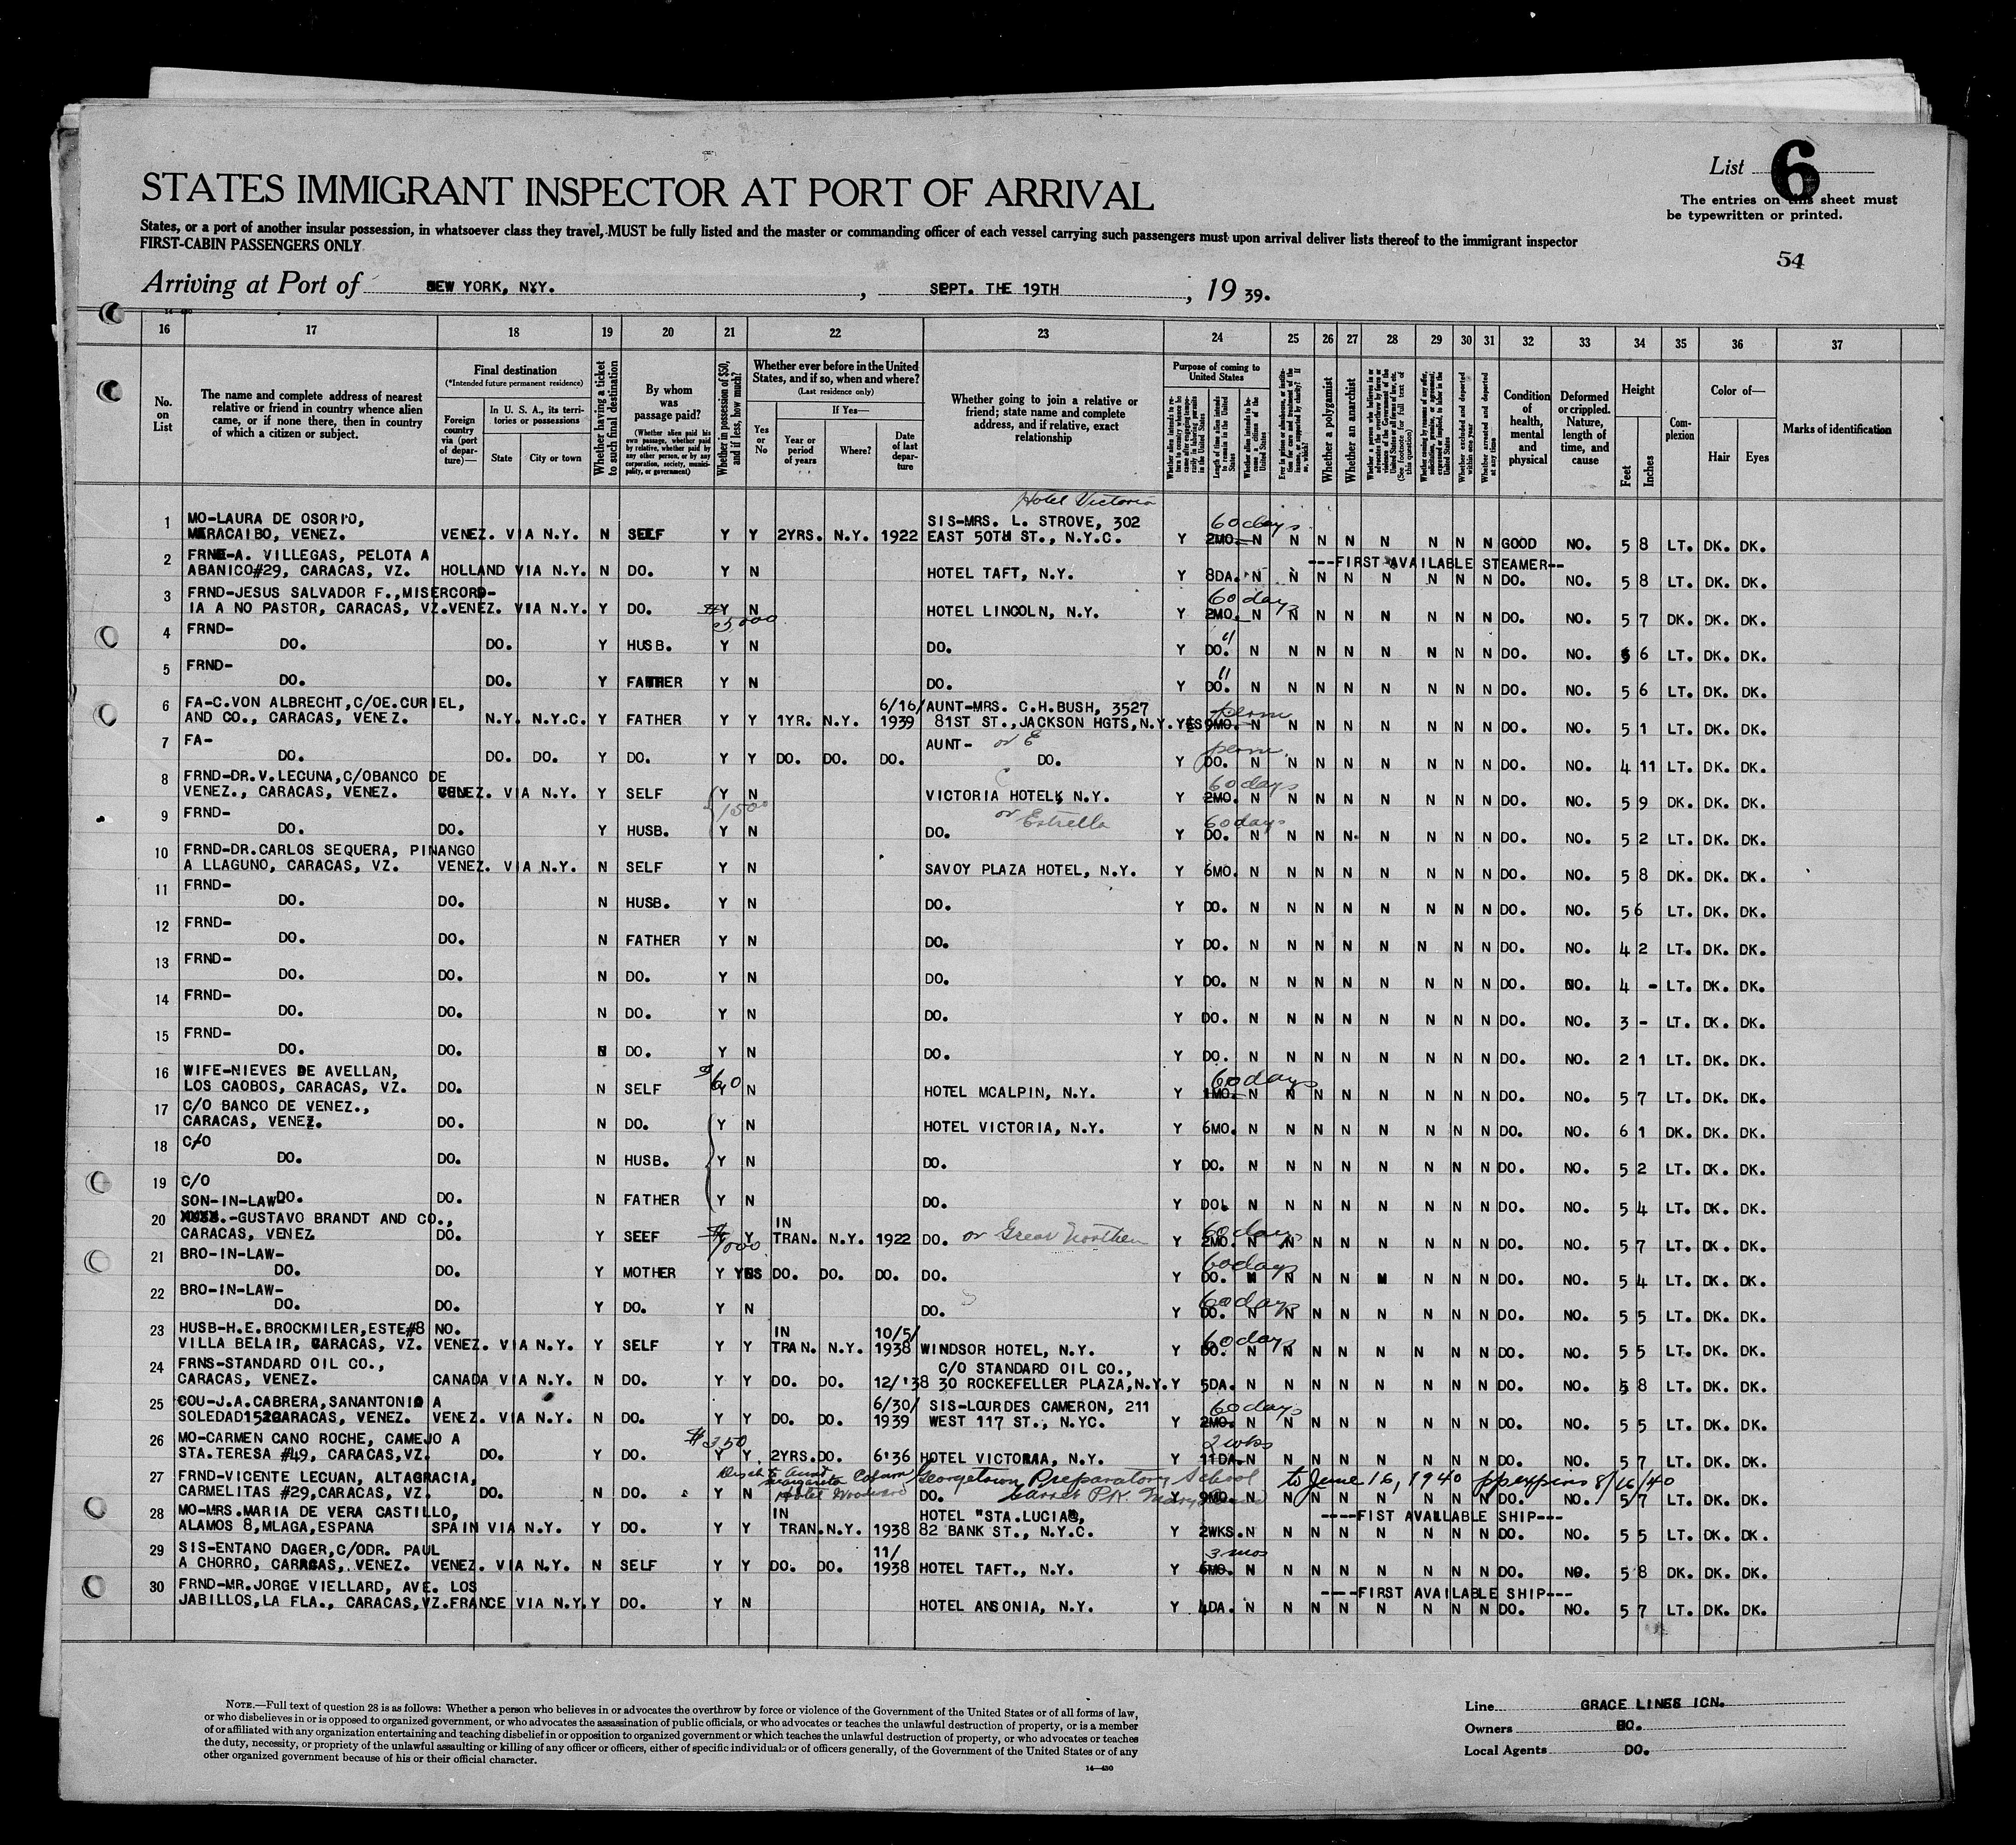 List 6
STATES IMMIGRANT INSPECTOR AT PORT OF ARRIVAL
The entries on this sheet must
be typewritten or printed.
States, or a port of another insular possession, in whatsoever class they travel, MUST be fully listed and the master or commanding officer of each vessel carrying such passengers must upon arrival deliver lists thereof to the immigrant inspector
FIRST-CABIN PASSENGERS ONLY
54
Arriving at Port of NEW YORK, N.Y. , SEPT. THE 19TH , 19 39.
16 17 18 19 20 21 22 23 24 25 26 27 28 29 30 31 32 33 34 35 36 37
No. on List
The name and complete address of nearest relative or friend in country whence alien came, or if none there, then in country of which a citizen or subject.
Final destination
(*Intended future permanent residence)
Foreign country via (port of departure)—
In U. S. A., its territories or possessions
State City or town
Whether having a ticket to such final destination
By whom was passage paid?
(Whether alien paid his own passage, whether paid by relative, whether paid by any other person, or by any corporation, society, municipality, or government)
Whether in possession of $50, and if less, how much?
Whether ever before in the United States, and if so, when and where?
(Last residence only)
Yes or No
If Yes—
Year or period of years Where? Date of last departure
Whether going to join a relative or friend; state name and complete address, and if relative, exact relationship
Purpose of coming to United States
Length of time alien intends to remain in the United States
Whether alien intends to become a citizen of the United States
Whether a polygamist
Whether an anarchist
Whether excluded and deported within one year
Whether arrested and deported at any time
Condition of health, mental and physical
Deformed or crippled. Nature, length of time, and cause
Height
Feet Inches
Complexion
Color of—
Hair Eyes
Marks of identification
Hotel Victoria
1 MO-LAURA DE OSORIO, SIS-MRS. L. STROVE, 302 60 days
MARACAIBO, VENEZ. VENEZ. VIA N.Y. N SELF Y Y 2YRS. N.Y. 1922 EAST 50TH ST., N.Y.C. Y 2MO. N N N N N N N N GOOD NO. 5 8 LT. DK. DK.
2 FRND-A. VILLEGAS, PELOTA A ---FIRST AVAILABLE STEAMER--
ABANICO#29, CARACAS, VZ. HOLLAND VIA N.Y. N DO. Y N HOTEL TAFT, N.Y. Y 8DA. N N N N N N N N DO. NO. 5 8 LT. DK. DK.
3 FRND-JESUS SALVADOR F.,MISERCORD- 60 days
IA A NO PASTOR, CARACAS, VZ. VENEZ. VIA N.Y. Y DO. Y N HOTEL LINCOLN, N.Y. Y 2MO. N N N N N N N N DO. NO. 5 7 DK. DK. DK.
4 FRND- 5000 "
DO. DO. Y HUSB. Y N DO. Y DO. N N N N N N N N DO. NO. 5 6 LT. DK. DK.
5 FRND- "
DO. DO. Y FATHER Y N DO. Y DO. N N N N N N N N DO. NO. 5 6 LT. DK. DK.
6 FA-C.VON ALBRECHT,C/OE.CURIEL, 6/16/ AUNT-MRS. C.H.BUSH, 3527 perm
AND CO., CARACAS, VENEZ. N.Y. N.Y.C. Y FATHER Y Y 1YR. N.Y. 1939 81ST ST.,JACKSON HGTS,N.Y. YES 9MO. N N N N N N N N DO. NO. 5 1 LT. DK. DK.
7 FA- AUNT- or E perm
DO. DO. DO. Y DO. Y Y DO. DO. DO. DO. Y DO. N N N N N N N N DO. NO. 4 11 LT. DK. DK.
8 FRND-DR.V.LECUNA,C/OBANCO DE 60 days
VENEZ., CARACAS, VENEZ. VENEZ. VIA N.Y. Y SELF Y N VICTORIA HOTEL, N.Y. Y 2MO. N N N N N N N N DO. NO. 5 9 DK. DK. DK.
9 FRND- 1500 or Estrella 60 days
DO. DO. Y HUSB. Y N DO. Y DO. N N N N N N N N DO. NO. 5 2 LT. DK. DK.
10 FRND-DR.CARLOS SEQUERA, PINANGO
A LLAGUNO, CARACAS, VZ. VENEZ. VIA N.Y. N SELF Y N SAVOY PLAZA HOTEL, N.Y. Y 6MO. N N N N N N N N DO. NO. 5 8 DK. DK. DK.
11 FRND-
DO. DO. N HUSB. Y N DO. Y DO. N N N N N N N N DO. NO. 5 6 LT. DK. DK.
12 FRND-
DO. DO. N FATHER Y N DO. Y DO. N N N N N N N N DO. NO. 4 2 LT. DK. DK.
13 FRND-
DO. DO. N DO. Y N DO. Y DO. N N N N N N N N DO. NO. 4 - LT. DK. DK.
14 FRND-
DO. DO. N DO. Y N DO. Y DO. N N N N N N N N DO. NO. 3 - LT. DK. DK.
15 FRND-
DO. DO. N DO. Y N DO. Y DO. N N N N N N N N DO. NO. 2 1 LT. DK. DK.
16 WIFE-NIEVES DE AVELLAN, $60 60 days
LOS CAOBOS, CARACAS, VZ. DO. N SELF Y N HOTEL MCALPIN, N.Y. Y 1MO. N N N N N N N N DO. NO. 5 7 LT. DK. DK.
17 C/O BANCO DE VENEZ.,
CARACAS, VENEZ. DO. N DO. Y N HOTEL VICTORIA, N.Y. Y 6MO. N N N N N N N N DO. NO. 6 1 DK. DK. DK.
18 C/O
DO. DO. N HUSB. Y N DO. Y DO. N N N N N N N N DO. NO. 5 2 LT. DK. DK.
19 C/O
DO. DO. N FATHER Y N DO. Y DO. N N N N N N N N DO. NO. 5 4 LT. DK. DK.
SON-IN-LAW-
20 -GUSTAVO BRANDT AND CO., IN 60 days
CARACAS, VENEZ DO. Y SEEF Y Y TRAN. N.Y. 1922 DO. or Great Northern Y 2MO. N N N N N N N N DO. NO. 5 7 LT. DK. DK.
21 BRO-IN-LAW- $1000 60 days
DO. DO. Y MOTHER Y YES DO. DO. DO. DO. Y DO. N N N N N N N N DO. NO. 5 4 LT. DK. DK.
22 BRO-IN-LAW- 60 days
DO. DO. Y DO. Y N DO. Y DO. N N N N N N N N DO. NO. 5 5 LT. DK. DK.
23 HUSB-H.E.BROCKMILER,ESTE#8 NO. IN 10/5/ 60 days
VILLA BELAIR, CARACAS, VZ. VENEZ. VIA N.Y. Y SELF Y Y TRAN. N.Y. 1938 WINDSOR HOTEL, N.Y. Y DO. N N N N N N N N DO. NO. 5 5 LT. DK. DK.
24 FRNS-STANDARD OIL CO., C/O STANDARD OIL CO.,
CARACAS, VENEZ. CANADA VIA N.Y. N DO. Y Y DO. DO. 12/'38 30 ROCKEFELLER PLAZA,N.Y. Y 5DA. N N N N N N N N DO. NO. 5 8 LT. DK. DK.
25 COU-J.A.CABRERA,SANANTONIO A 6/30/ SIS-LOURDES CAMERON, 211 60 days
SOLEDAD152CARACAS, VENEZ. VENEZ. VIA N.Y. N DO. Y Y DO. DO. 1939 WEST 117 ST., N.YC. Y 2MO. N N N N N N N N DO. NO. 5 5 LT. DK. DK.
26 MO-CARMEN CANO ROCHE, CAMEJO A $350 2 wks
STA.TERESA #49, CARACAS,VZ. DO. Y DO. Y Y 2YRS.DO. 6'36 HOTEL VICTORIA, N.Y. Y 11DA. N N N N N N N N DO. NO. 5 7 LT. DK. DK.
27 FRND-VICENTE LECUAN, ALTAGRACIA, Aunt Margarita Georgetown Preparatory School to June 16, 1940 pp expires 8/16/40
CARMELITAS #29,CARACAS, VZ. DO. N DO. Y N Hotel Woodward DO. Garrett Pk. Maryland Y 9MO. N N N N N N N N DO. NO. 5 7 LT. DK. DK.
28 MO-MRS.MARIA DE VERA CASTILLO, IN HOTEL "STA.LUCIA", ----FIST AVAILABLE SHIP---
ALAMOS 8,MLAGA,ESPANA SPAIN VIA N.Y. Y DO. Y Y TRAN.N.Y. 1938 82 BANK ST., N.Y.C. Y 2WKS. N N N N N N N N DO. NO. 5 5 LT. DK. DK.
29 SIS-ENTANO DAGER,C/ODR. PAUL 11/ 3 mos
A CHORRO, CARACAS, VENEZ. VENEZ. VIA N.Y. N SELF Y Y DO. DO. 1938 HOTEL TAFT., N.Y. Y 6MO. N N N N N N N N DO. NO. 5 8 DK. DK. DK.
30 FRND-MR.JORGE VIELLARD, AVE. LOS ----FIRST AVAILABLE SHIP---
JABILLOS,LA FLA., CARACAS,VZ. FRANCE VIA N.Y. Y DO. Y N HOTEL ANSONIA, N.Y. Y 4DA. N N N N N N N N DO. NO. 5 7 LT. DK. DK.
NOTE.—Full text of question 28 is as follows: Whether a person who believes in or advocates the overthrow by force or violence of the Government of the United States or of all forms of law,
or who disbelieves in or is opposed to organized government, or who advocates the assassination of public officials, or who advocates or teaches the unlawful destruction of property, or is a member
of or affiliated with any organization entertaining and teaching disbelief in or opposition to organized government or which teaches the unlawful destruction of property, or who advocates or teaches
the duty, necessity, or propriety of the unlawful assaulting or killing of any officer or officers, either of specific individuals or of officers generally, of the Government of the United States or of any
other organized government because of his or their official character.
14—430
Line GRACE LINES ICN.
Owners DO.
Local Agents DO.